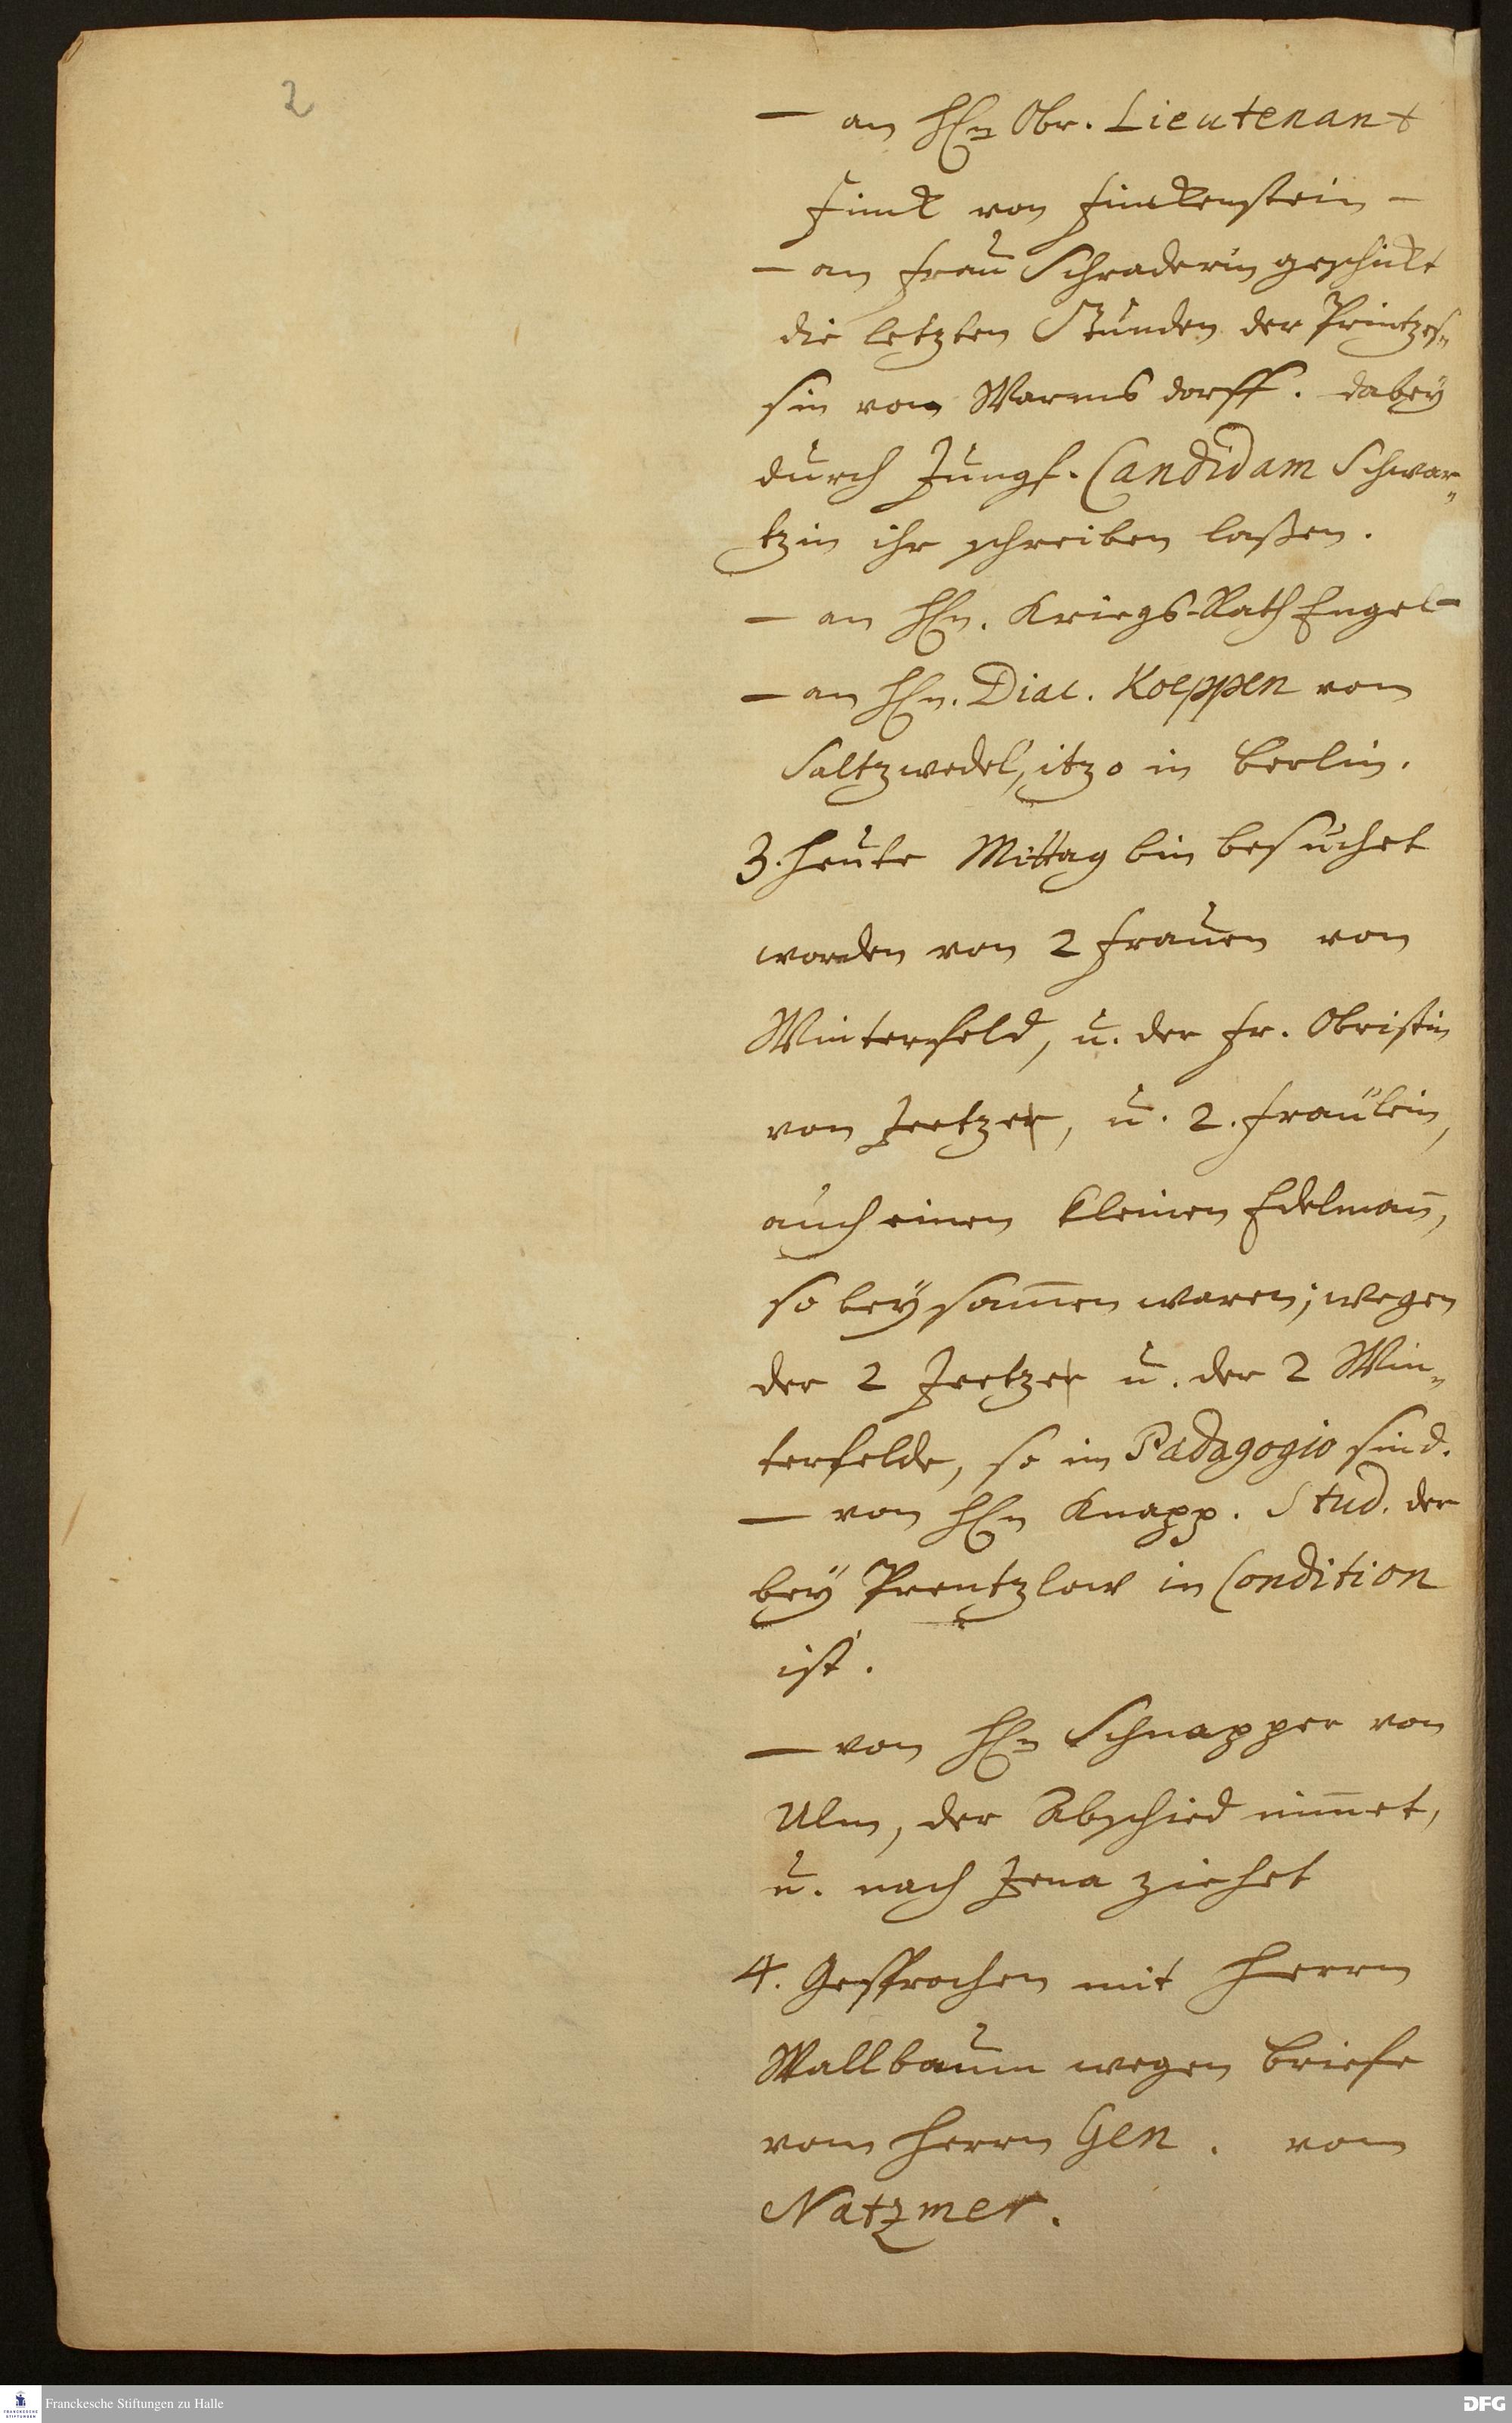 2
— an HEn Obr. Lieutenant
Finck von Finckenstein –
— an Frau Schraderin geschickt
die letzten Stunden der Printzes=
sin von Warmsdorff. dabey
durch Jungf. Candidam Schwar=
tzin ihr schreiben laßen.
— an HEn. Kriegs-Rath Engel –
— an HEn. Diac. Koeppen von
Saltzwedel, itzo in Berlin.
3. Heute Mittag bin besuchet
worden von 2 Frauen von
Winterfeld, u. der Fr. Obristin
von Jeetze, u. 2. Fräulein,
auch einen kleinen Edelman̄,
so beysam̄en waren; wegen
der 2 Jeetze u. der 2 Win=
terfelde, so im Padagogio sind.
— von HEn Knapp. Stud. der
bey Prentzlow in Condition
ist.
— von HEn Schnapper von
Ulm, der Abschied nim̄et,
u. nach Jena ziehet
4. Gesprochen mit Herrn
Wallbaum wegen Briefe
vom Herrn Gen. von
Natzmer.
Franckesche Stiftungen zu Halle
DFG